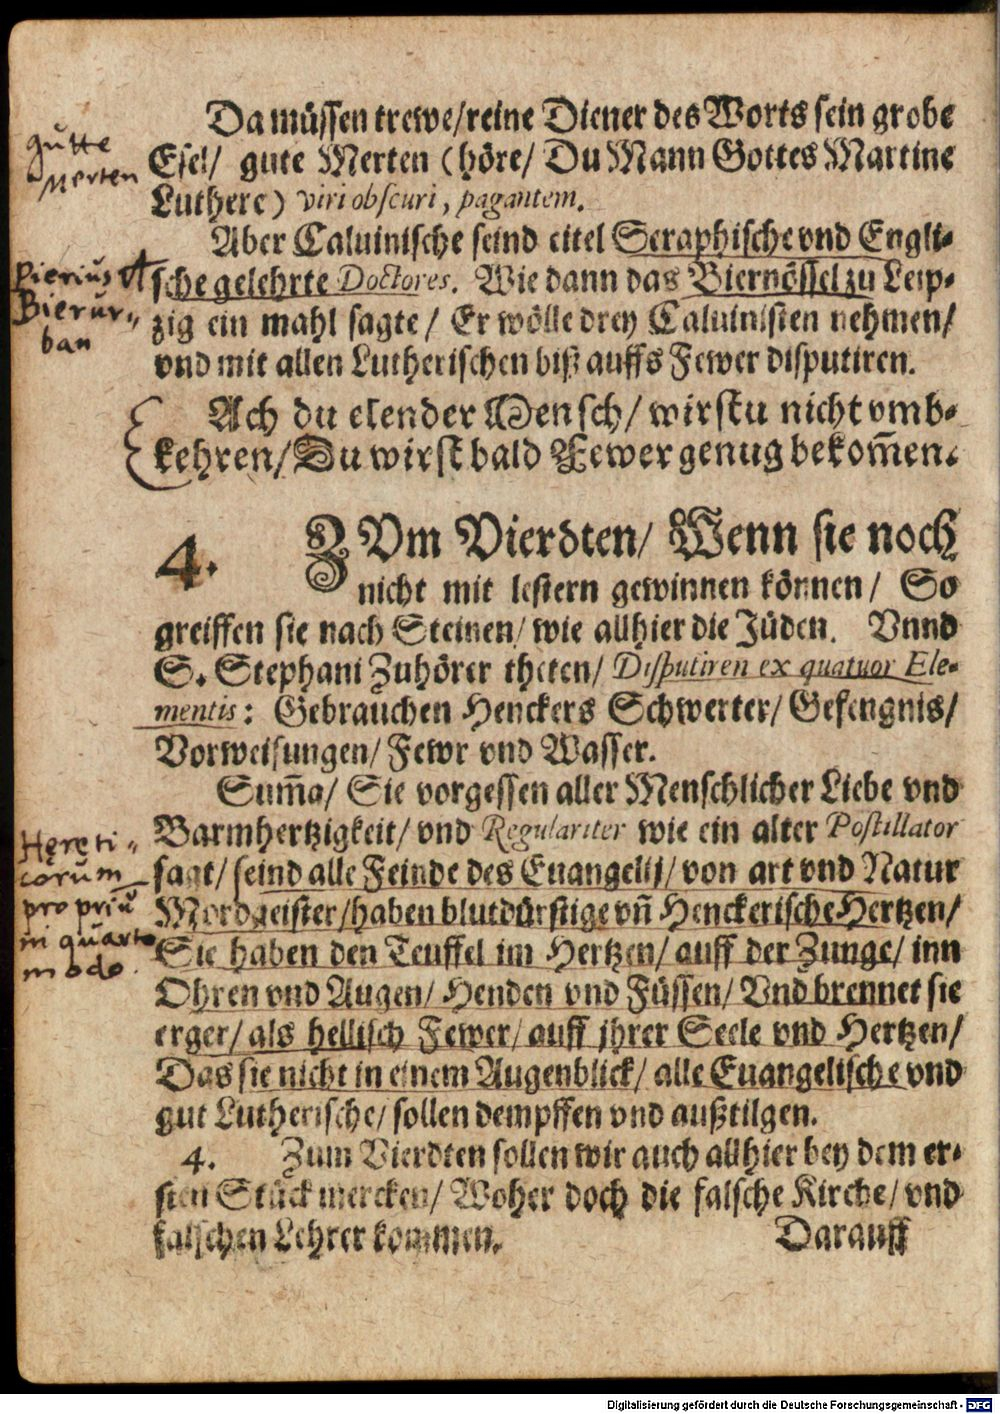 Da müssen trewe/reine Diener des Worts sein grobe
Esel/ gute Merten (höre/ Du Mann Gottes Martine
Luthere) viri obscuri, pagantem.
gutte
Merten
Aber Caluinische seind eitel Seraphische vnd Engli-
sche gelehrte Doctores. Wie dann das Biernössel zu Leip-
zig ein mahl sagte/ Er wölle drey Caluinisten nehmen/
vnd mit allen Lutherischen biß auffs Fewer disputiren.
Pierius
Bierur-
ban
Ach du elender Mensch/ wirstu nicht vmb-
kehren/ Du wirst bald Fewer genug bekom̃en.
4. ZVm Vierdten/ Wenn sie noch
nicht mit lestern gewinnen können/ So
greiffen sie nach Steinen/ wie allhier die Jüden. Vnnd
S. Stephani Zuhörer theten/ Disputiren ex quatuor Ele-
mentis: Gebrauchen Henckers Schwerter/ Gefengnis/
Vorweisungen/ Fewr vnd Wasser.
Sum̃a/ Sie vorgessen aller Menschlicher Liebe vnd
Barmhertzigkeit/ vnd Regulariter wie ein alter Postillator
sagt/ seind alle Feinde des Euangelij/ von art vnd Natur
Mordgeister/haben blutdürstige vn̄ Henckerische Hertzen/
Sie haben den Teuffel im Hertzen/ auff der Zunge/ inn
Ohren vnd Augen/ Henden vnd Füssen/ Vnd brennet sie
erger/ als hellisch Fewer/ auff jhrer Seele vnd Hertzen/
Das sie nicht in einem Augenblick/ alle Euangelische vnd
gut Lutherische/ sollen dempffen vnd außtilgen.
Hęreti-
corum
propriū
in quarto
modo.
4. Zum Vierdten sollen wir auch allhier bey dem er-
sten Stück mercken/ Woher doch die falsche Kirche/ vnd
falschen Lehrer kommen.
Darauff
Digitalisierung gefördert durch die Deutsche Forschungsgemeinschaft - DFG